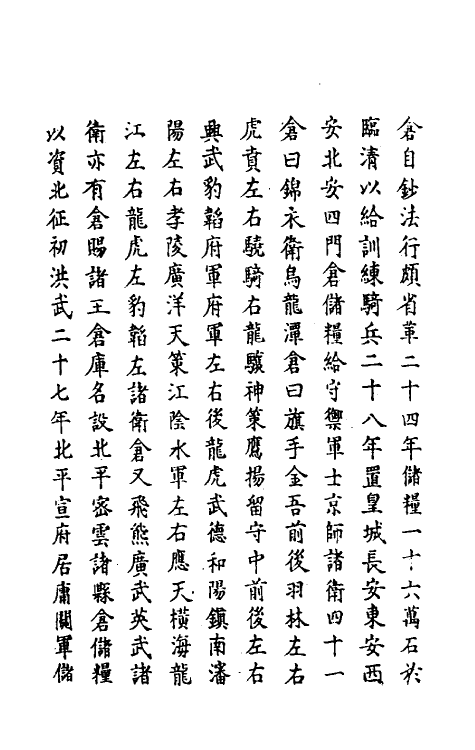 倉自鈔法行頗省革二十四年儲糧一十六萬石於
臨清以給訓練騎兵二十八年置皇城長安東安西
安北安四門倉儲糧給守禦軍士京師諸衛四十一
倉曰錦衣衛烏龍潭倉曰旗手金吾前後羽林左右
虎賁左右驍騎右龍驤神策鷹揚留守中前後左右
興武豹韜府軍府軍左右後龍虎武德和陽鎮南瀋
陽左右孝陵廣洋天策江陰水軍左右應天橫海龍
江左右龍虎左豹韜左諸衛倉又飛熊廣武英武諸
衛亦有倉賜諸王倉庫名設北平密雲諸縣倉儲糧
以資北征初洪武二十七年北平宣府居庸關軍儲